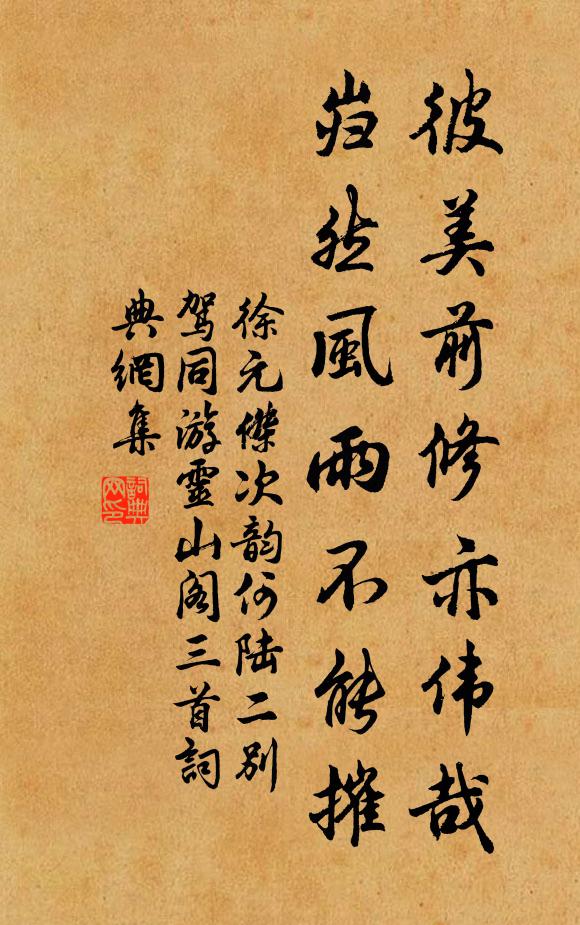 彼美前修亦伟哉
岿然風雨不能摧
徐元傑次韵何陆二别
駕同游靈山阁三首詞
典網集
詞典
网印